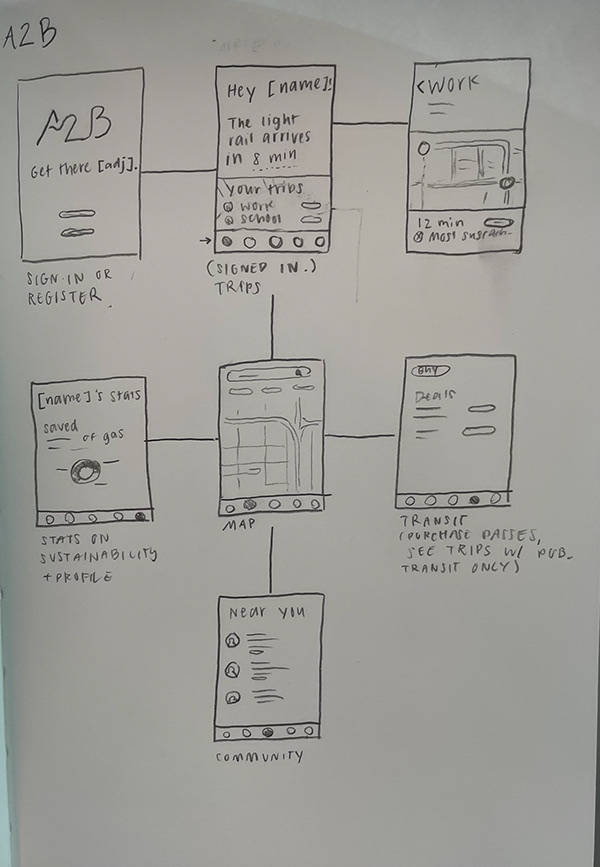 A2B
A2B
Get there [adj].
SIGN-IN OR
REGISTER
Hey [name]!
The light
rail arrives
in 8 min
Your trips
work
school
(SIGNED IN.)
TRIPS
<Work
12 min
Most
[name]'s stats
saved
of gas
STATS ON
SUSTAINABILITY
+ PROFILE
MAP
Buy
Deals
TRANSIT
(PURCHASE PASSES,
SEE TRIPS W/ PUB.
TRANSIT ONLY)
Near you
COMMUNITY